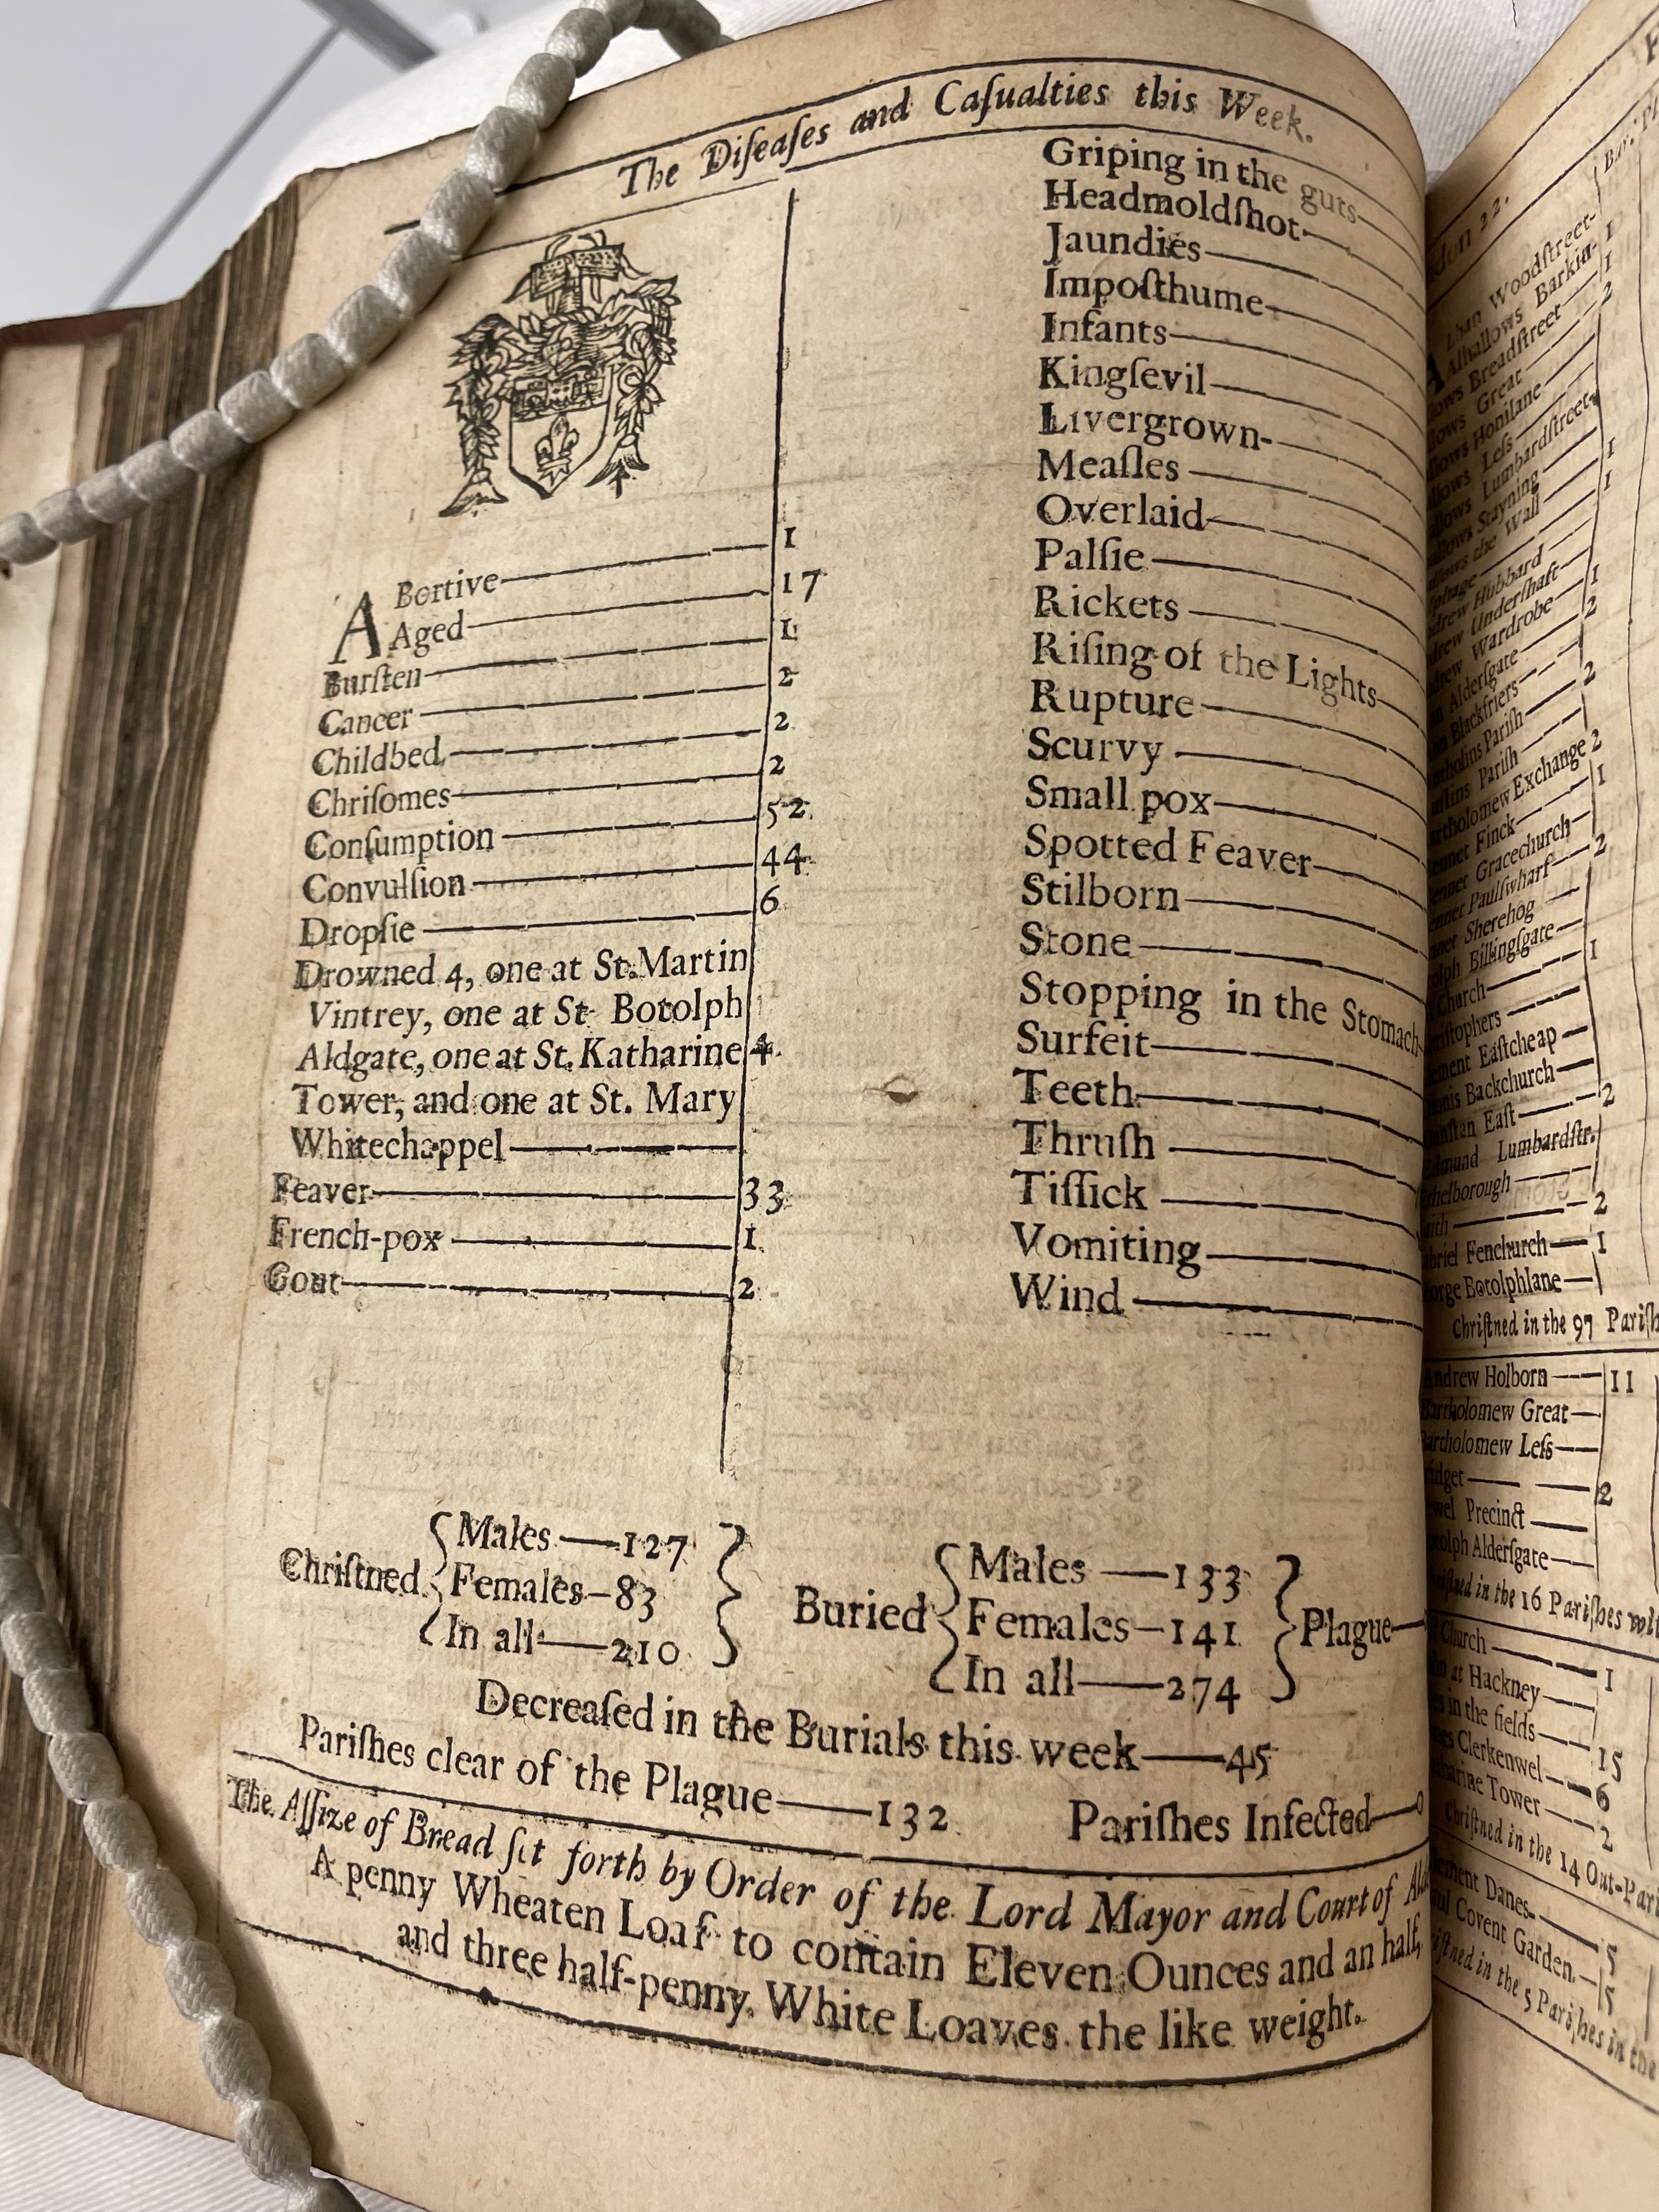 The Diſeaſes and Caſualties this Week.
ABortive 1
Aged 17
Burſten 1
Cancer 2
Childbed 2
Chriſomes 2
Conſumption 52
Convulſion 44
Dropſie 6
Drowned 4, one at St. Martin
Vintrey, one at St Botolph
Aldgate, one at St. Katharine 4
Tower, and one at St. Mary
Whitechappel
Feaver 33
French-pox 1
Gout 2
Griping in the guts
Headmoldſhot
Jaundies
Impoſthume
Infants
Kingſevil
Livergrown
Meaſles
Overlaid
Palſie
Rickets
Riſing of the Lights
Rupture
Scurvy
Small pox
Spotted Feaver
Stilborn
Stone
Stopping in the Stomach
Surfeit
Teeth
Thruſh
Tiſſick
Vomiting
Wind
Chriſtned
Males 127
Females 83
In all 210
Buried
Males 133
Females 141
In all 274
Plague
Decreaſed in the Burials this week 45
Pariſhes clear of the Plague 132 Pariſhes Infected 0
The Aſſize of Bread ſet forth by Order of the Lord Mayor and Court of
A penny Wheaten Loaf to contain Eleven Ounces and an half,
and three half-penny White Loaves the like weight.
22.
Woodſtreet
Alhallows Barkin 1
Breadſtreet 1
Great 2
Honilane
Leſs
Lumbardſtreet
Stayning 1
the Wall 1
Hubbard
Underſhaft
Wardrobe 1
Alderſgate 2
Blackfriers
Pariſh 2
Pariſh
Exchange 2
Finck 1
Gracechurch
Paulſwharf 2
Sherehog
Billingſgate
Church 1
Eaſtcheap
Backchurch
Eaſt 2
Lumbardſtr.
2
Fenchurch 1
Botolphlane
Chriſtned in the 97
Andrew Holborn 11
Bartholomew Great
Bartholomew Leſs
2
Precinct
Alderſgate
in the 16 Pariſhes
Church 1
at Hackney
in the fields 15
Clerkenwel 6
Tower 2
Chriſtned in the 14
Danes 5
Covent Garden 5
in the 5 Pariſhes in the